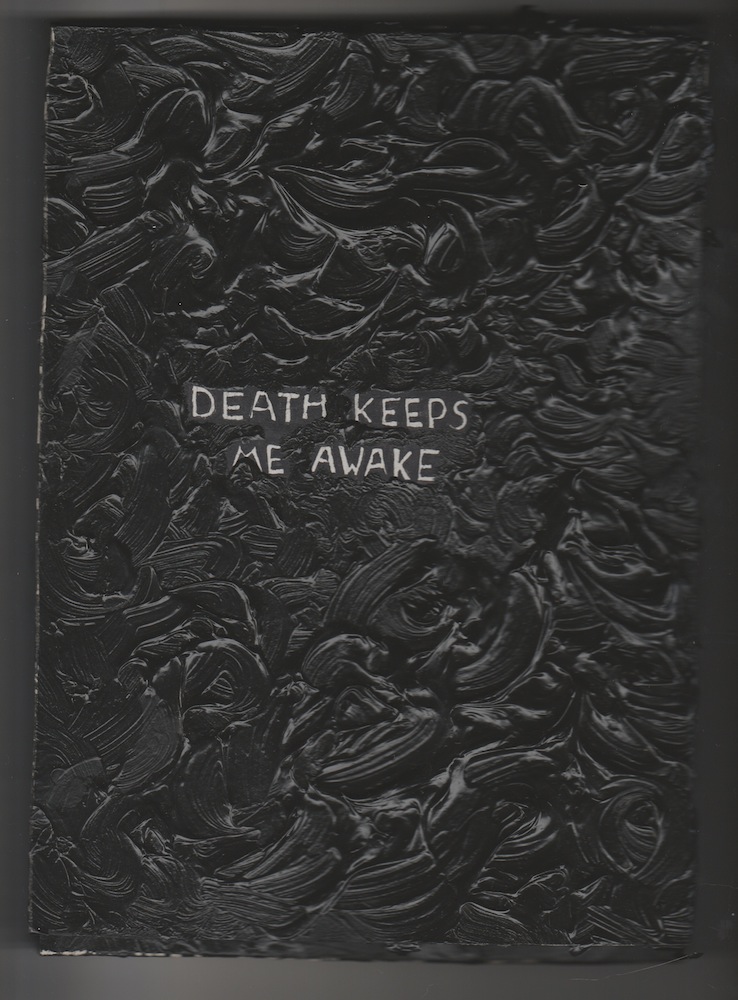 DEATH KEEPS
ME AWAKE